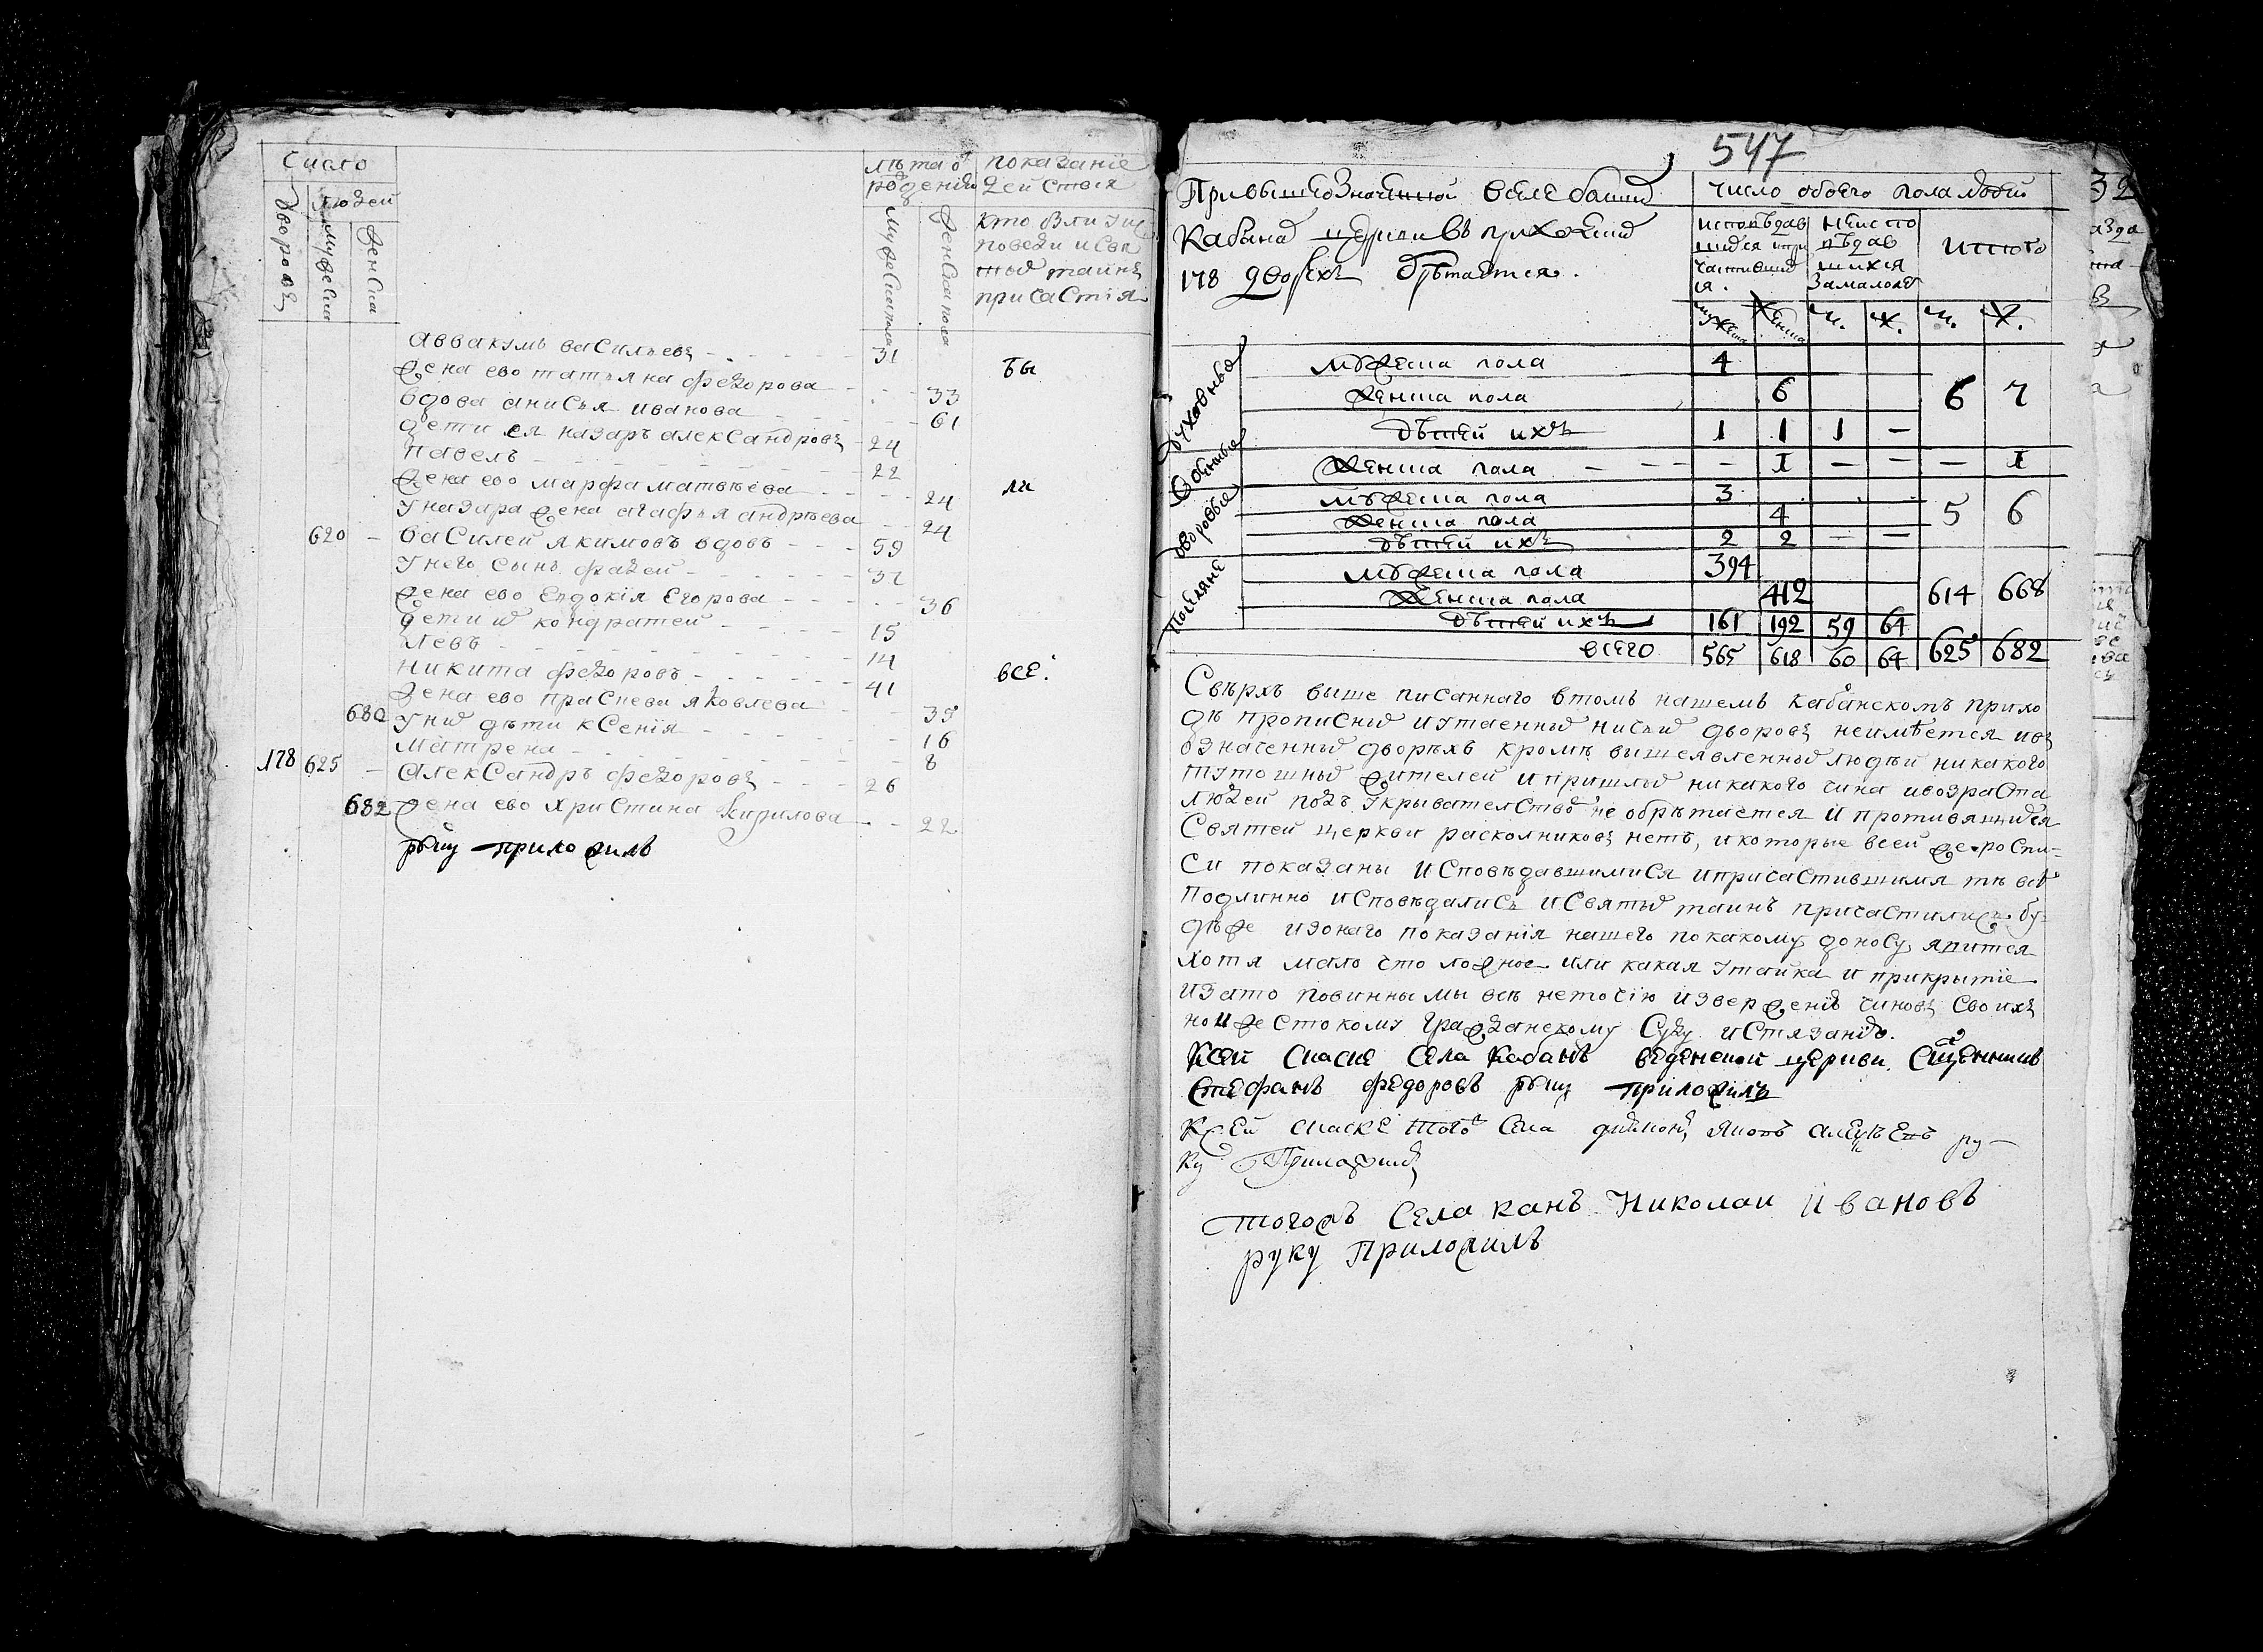 число
людей
дворовъ
мужеска
женска
лѣта о
рождения
мужеска пола
женска пола
показание
действа
кто были у ис
поведи и свя
тых таинъ
причастия
аввакумъ васильевъ 31
жена ево татьяна федорова 33
бы
вдова анисья иванова 61
дети ея назаръ александровъ 24
павелъ 22
жена ево марфа матвѣева 24
ли
у назара жена агафья андрѣева 24
620 василей якимовъ вдовъ 59
у него сынъ фадей 37
жена ево евдокия егорова 36
дети их кондратей 15
левъ 14
никита федоровъ 41
все
жена ево прасковья яковлева 35
680 у них дѣти ксения 16
матрена 8
178 625 александръ федоровъ 26
682 жена ево христина кирилова 22
руку приложилъ
547
При вышеозначенной в селе
Кабанах церкви въ приходе
178 дворехъ обрѣтается
число обоего пола людей
исповѣдав
шихся и при
частивших
ся
неиспо
вѣдав
шихся
за малолет
итого
мужеска женска м. ж. м. ж.
духовные
мужеска пола 4
женска пола 6 6 7
дѣтей ихъ 1 1 1 —
военные
женска пола — 1 — — — 1
дворовые
мужеска пола 3
женска пола 4 5 6
дѣтей ихъ 2 2 — —
поселяне
мужеска пола 394
женска пола 412 614 668
дѣтей ихъ 161 192 59 64
всего 565 618 60 64 625 682
Сверхъ выше писаннаго в томъ нашемъ кабанскомъ прихо
дѣ прописных и утаенных ничьих дворовъ неимѣется и въ
означенных дворѣхъ кромѣ вышеявленных людѣй никакого
тутошных жителей и пришлых никакого чина и возраста
людей подъ укрывателством не обрѣтается и противящихся
Святей церкви расколниковъ нетъ, и которые в сей же роспи-
си показаны исповѣдавшимися и причастившимися тѣ всѣ
подлинно исповѣдались и святых таинъ причастились бу-
дѣже из онаго показания нашего по какому доносу явится
хотя мало что ложное или какая утайка и прикрытие
и за то повинны мы всѣ не точию извержению чиновъ своихъ
но и жестокому гражданскому суду и истязанию.
К сей скаске села Кабанъ веденской церкви священникъ
Стефанъ федоровъ руку приложилъ
К сей скаске того села диаконъ яковъ алеѯѣевъ ру-
ку Приложилъ
тогожъ села канъ Николаи Ивановъ
руку Приложилъ